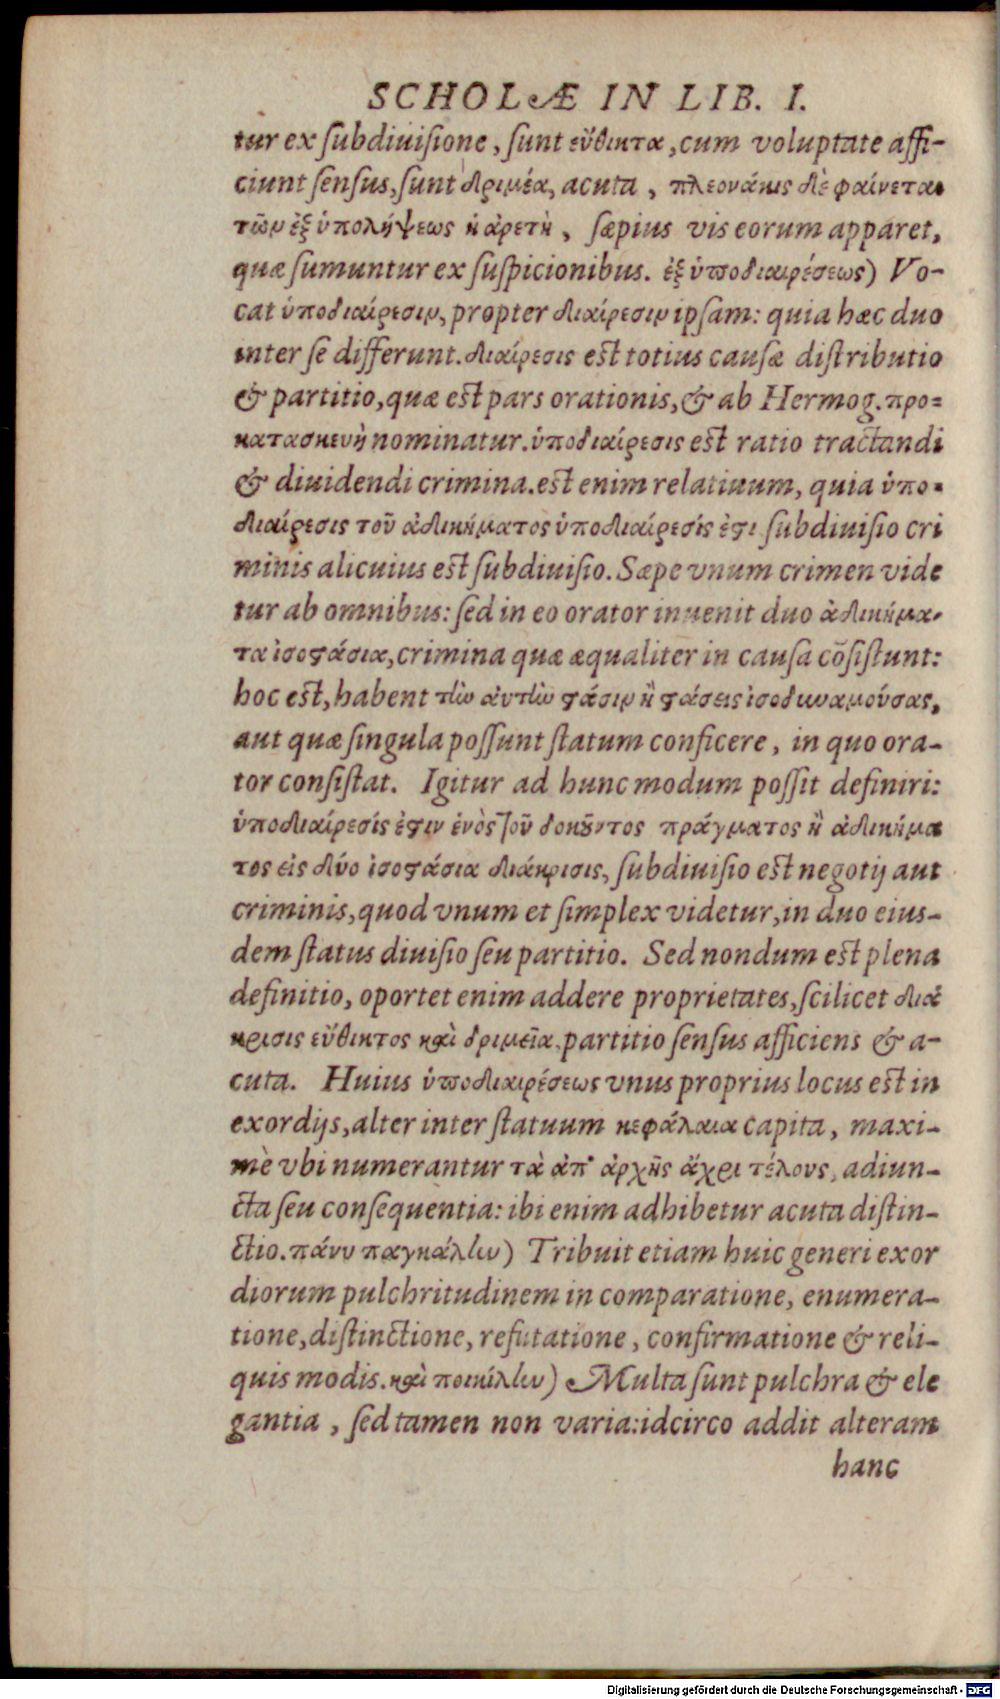 SCHOLÆ IN LIB. I.
tur ex ſubdiuiſione, ſunt εὔθικτα, cum voluptate affi-
ciunt ſenſus, ſunt δριμέα, acuta, πλεονάκις δὲ φαίνεται
τῶν ἐξ ὑπολήψεως ἡ ἀρετὴ, ſæpius vis eorum apparet,
quæ ſumuntur ex ſuſpicionibus. ἐξ ὑποδιαιρέσεως) Vo-
cat ὑποδιαίρεσιν, propter διαίρεσιν ipſam: quia hæc duo
inter ſe differunt. διαίρεσις est totius cauſæ diſtributio
& partitio, quæ est pars orationis, & ab Hermog. προ-
κατασκευὴ nominatur. ὑποδιαίρεσις est ratio tractandi
& diuidendi crimina. est enim relatiuum, quia ὑπο-
διαίρεσις τοῦ ἀδικήματος ὑποδιαίρεσίς ἐστι ſubdiuiſio cri
minis alicuius est ſubdiuiſio. Sæpe vnum crimen vide
tur ab omnibus: ſed in eo orator inuenit duo ἀδικήμα-
τα ἰσοστάσια, crimina quæ æqualiter in cauſa cōſiſtunt:
hoc est, habent τὴν αὐτὴν στάσιν ἢ στάσεις ἰσοδυναμούσας,
aut quæ ſingula poſſunt ſtatum conficere, in quo ora-
tor conſiſtat. Igitur ad hunc modum poſſit definiri:
ὑποδιαίρεσίς ἐστιν ἑνὸς τοῦ δοκοῦντος πράγματος ἢ ἀδικήμα
τος εἰς δύο ἰσοστάσια διάκρισις, ſubdiuiſio est negotij aut
criminis, quod vnum et ſimplex videtur, in duo eius-
dem ſtatus diuiſio ſeu partitio. Sed nondum est plena
definitio, oportet enim addere proprietates, ſcilicet διά
κρισις εὔθικτος καὶ δριμεῖα, partitio ſenſus afficiens & a-
cuta. Huius ὑποδιαιρέσεως vnus proprius locus est in
exordijs, alter inter ſtatuum κεφάλαια capita, maxi-
mè vbi numerantur τὰ ἀπ' ἀρχῆς ἄχρι τέλους, adiun-
cta ſeu conſequentia: ibi enim adhibetur acuta diſtin-
ctio. πάνυ παγκάλην) Tribuit etiam huic generi exor
diorum pulchritudinem in comparatione, enumera-
tione, diſtinctione, refutatione, confirmatione & reli-
quis modis. καὶ ποικίλην) Multa ſunt pulchra & ele
gantia, ſed tamen non varia: idcirco addit alteram
hanc
Digitalisierung gefördert durch die Deutsche Forschungsgemeinschaft - DFG